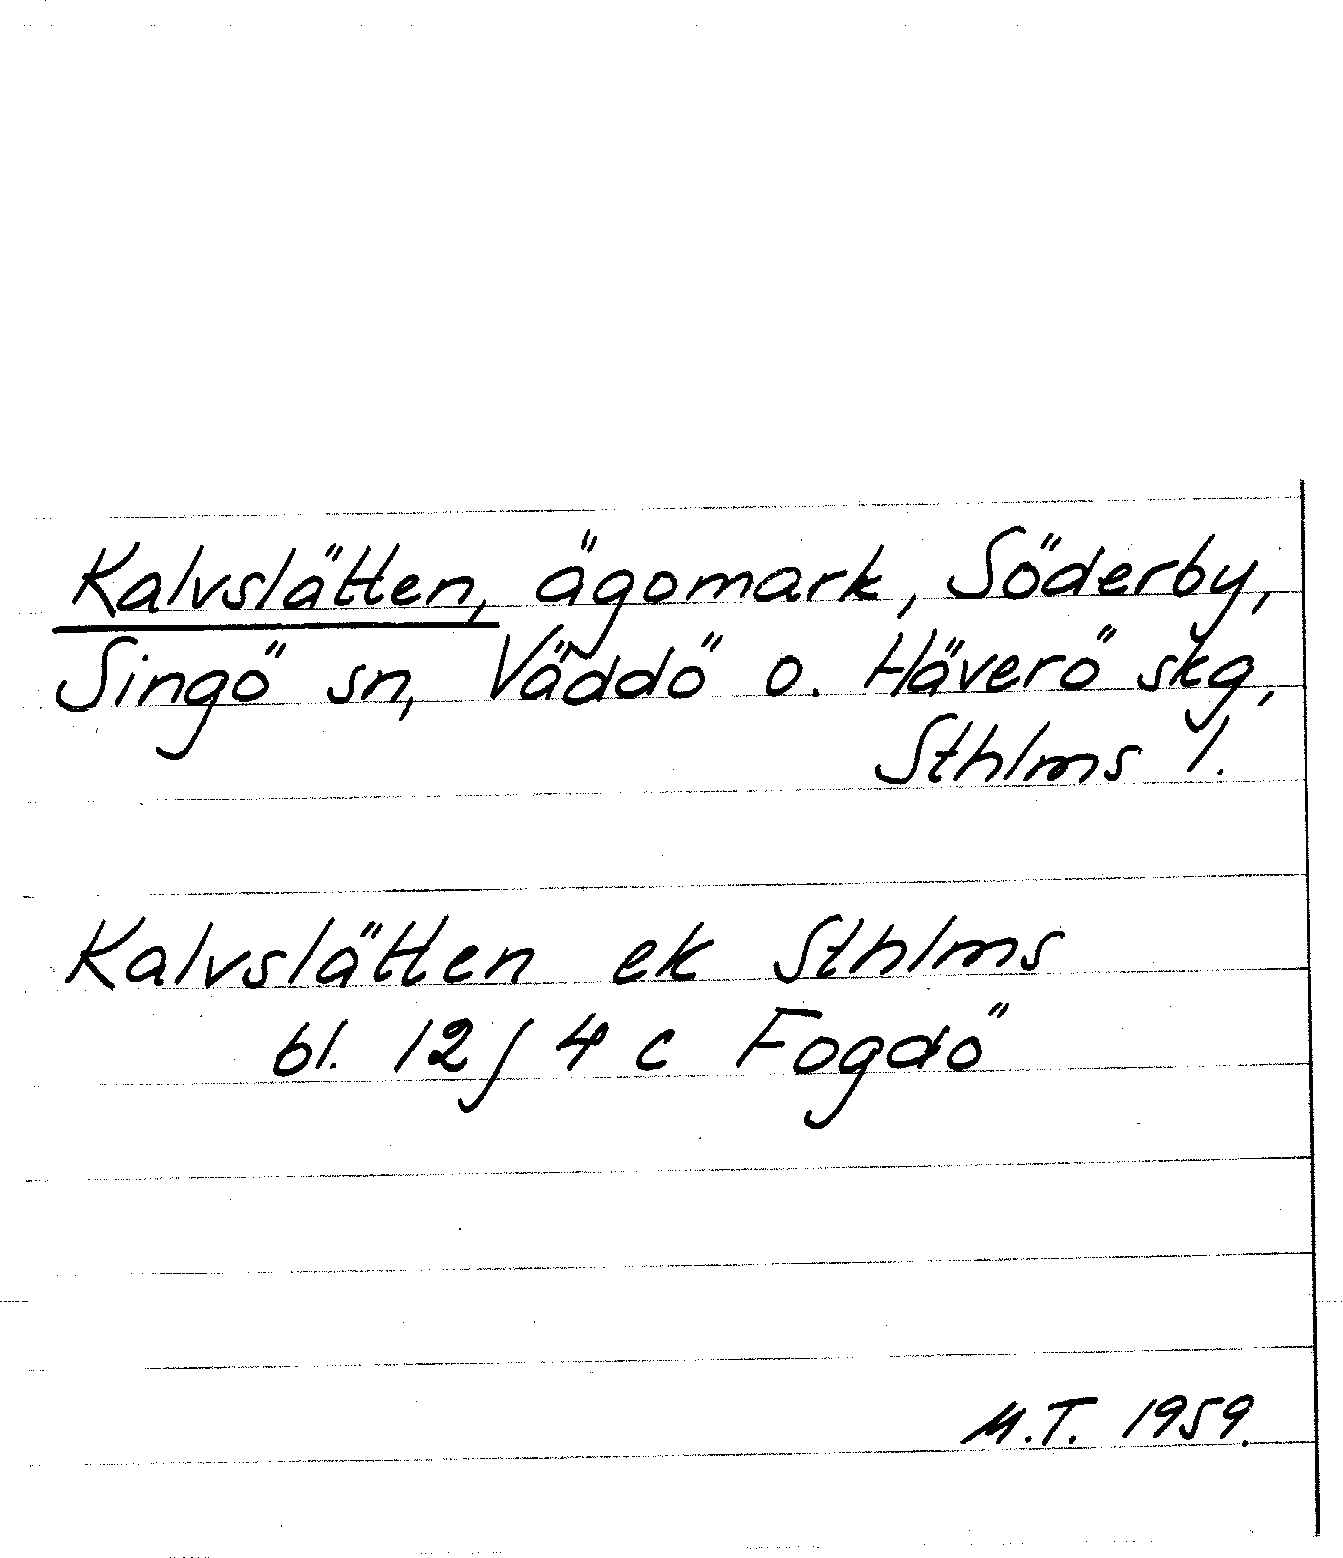 Kalvslätten, ägomark, Söderby,
Singö sn, Väddö o. Häverö skg,
Sthlms l.
Kalvslätten ek Sthlms
bl. 12j 4c Fogdö
M.T. 1959.